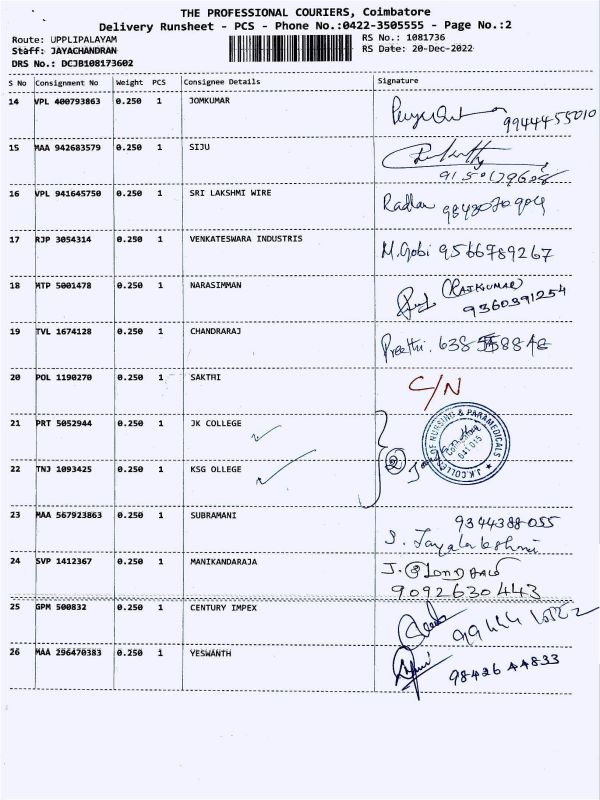 THE PROFESSIONAL COURIERS, Coimbatore
Delivery Runsheet - PCS - Phone No.:0422-3505555 - Page No.:2
Route: UPPLIPALAYAM RS No.: 1081736
Staff: JAYACHANDRAN RS Date: 20-Dec-2022
DRS No.: DCJB108173602
S No Consignment No Weight PCS Consignee Details Signature
14 VPL 400793863 0.250 1 JOMKUMAR
9944455010
15 MAA 942683579 0.250 1 SIJU
16 VPL 941645750 0.250 1 SRI LAKSHMI WIRE Radha
17 RJP 3054314 0.250 1 VENKATESWARA INDUSTRIS M.Gobi 9566789267
18 MTP 5001478 0.250 1 NARASIMMAN (RAJKUMAR)
9360391254
19 TVL 1674128 0.250 1 CHANDRARAJ Preethi.
20 POL 1190270 0.250 1 SAKTHI C/N
21 PRT 5052944 0.250 1 JK COLLEGE
J.K.COLLEGE OF NURSING & PARAMEDICALS
22 TNJ 1093425 0.250 1 KSG OLLEGE
23 MAA 567923863 0.250 1 SUBRAMANI 9344388055
S. Jayalakshmi
24 SVP 1412367 0.250 1 MANIKANDARAJA
9092630443
25 GPM 500832 0.250 1 CENTURY IMPEX
26 MAA 296470383 0.250 1 YESWANTH 9842644833